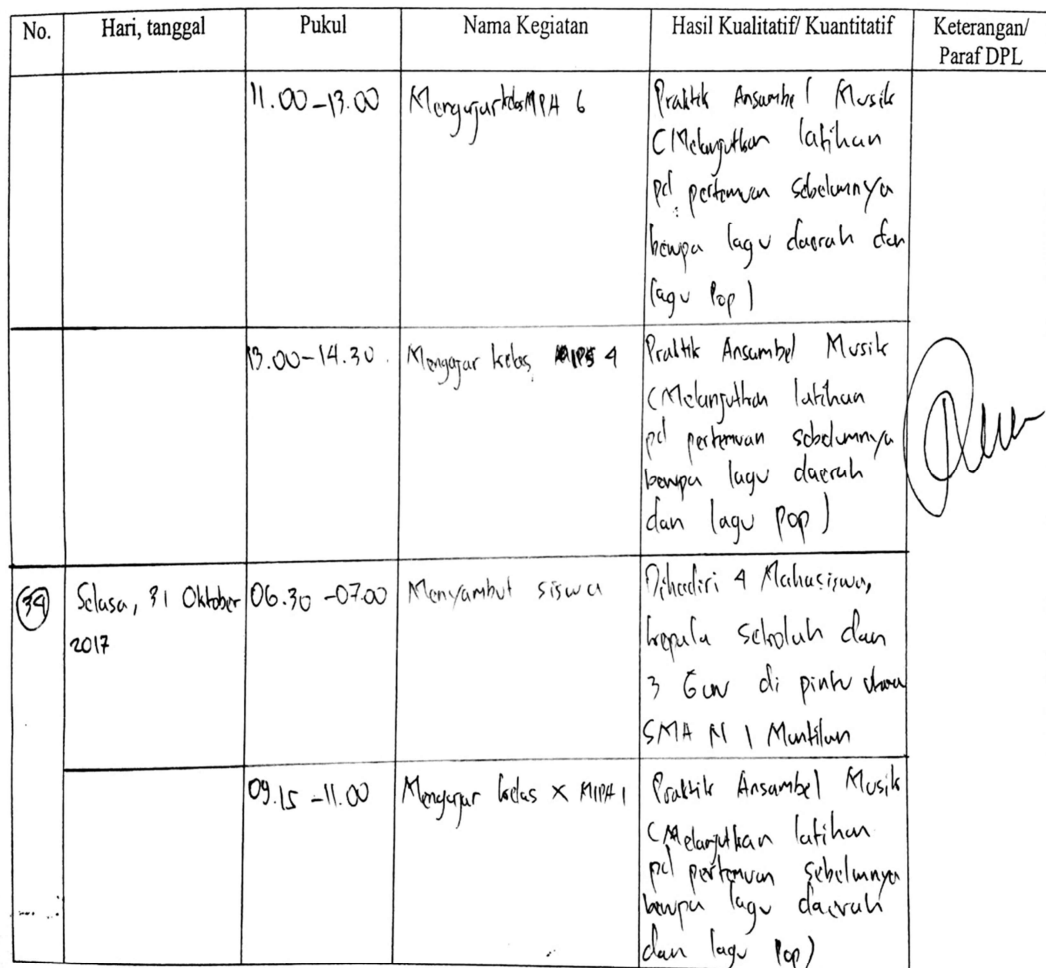 No.
Hari, tanggal
Pukul
Nama Kegiatan
Hasil Kualitatif/ Kuantitatif
Keterangan/
Paraf DPL
11.00-13.00
Mengajar kelas MIPA 6
Praktik Ansambel Musik
(Melanjutkan latihan
pd pertemuan sebelumnya
berupa lagu daerah dan
lagu Pop)
13.00-14.30
Mengajar kelas 4
Praktik Ansambel Musik
(Melanjutkan latihan
pd pertemuan sebelumnya
berupa lagu daerah
dan lagu Pop)
39
Selasa, 31 Oktober
2017
06.30 -07.00
Menyambut siswa
Dihadiri 4 Mahasiswa,
kepala sekolah dan
3 Guru di pintu utama
SMA N 1 Muntilan
09.15 -11.00
Mengajar kelas X MIPA 1
Praktik Ansambel Musik
(Melanjutkan latihan
pd pertemuan sebelumnya
berupa lagu daerah
dan lagu Pop)